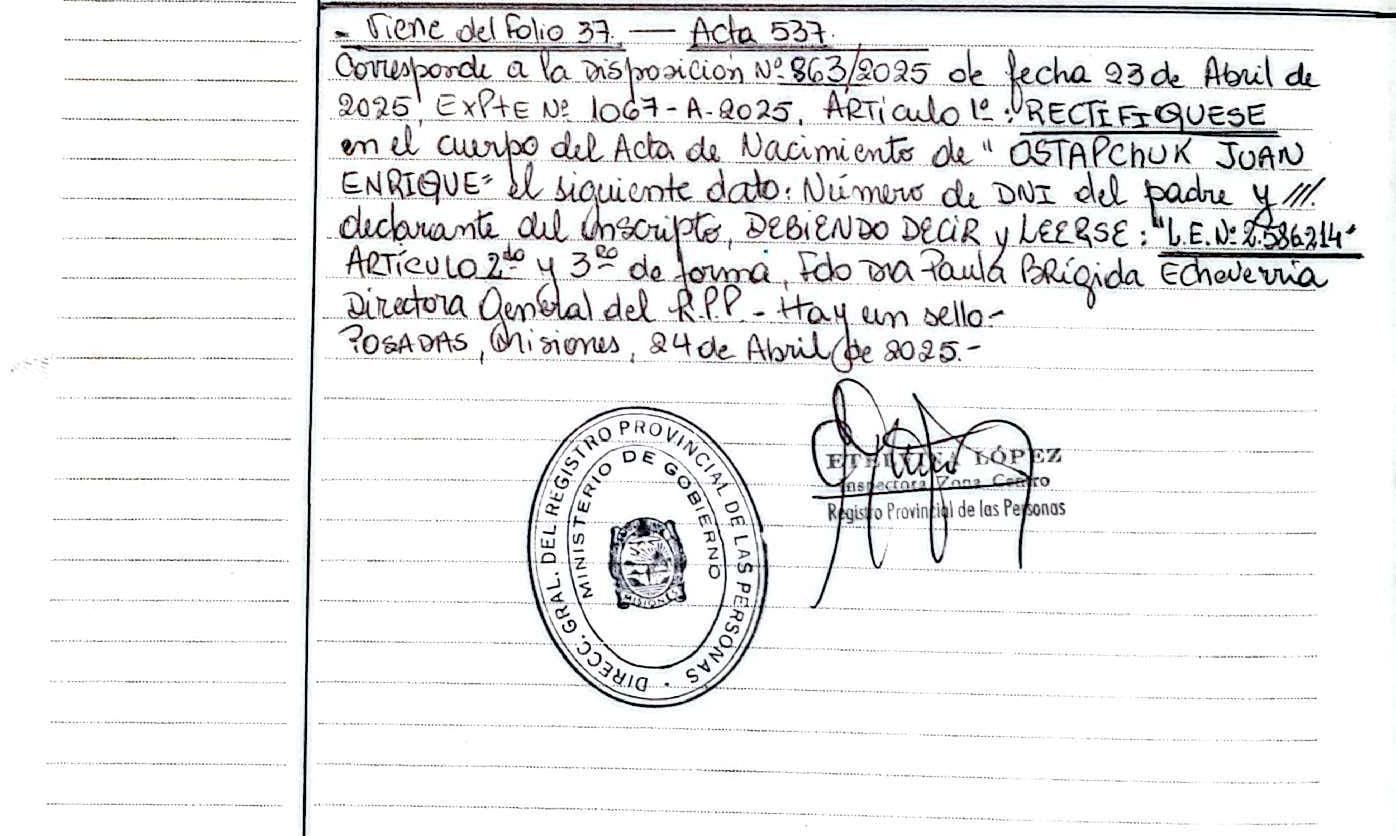 - Viene del Folio 37. — Acta 537.
Corresponde a la Disposición Nº 863/2025 de fecha 23 de Abril de
2025, EXPTE Nº 1067-A-2025, ARTículo 1º: RECTIFIQUESE
en el cuerpo del Acta de Nacimiento de "OSTAPCHUK JUAN
ENRIQUE" el siguiente dato: Número de DNI del padre y ///.
declarante del inscripto, DEBIENDO DECIR y LEERSE: "L.E.Nº 2.586.214"
ARTÍCULO 2do y 3ro de forma, Fdo Dra Paula BRígida Echeverria
Directora General del R.P.P. - Hay un sello-
POSADAS, Misiones, 24 de Abril de 2025.-
DIRECC. GRAL. DEL REGISTRO PROVINCIAL DE LAS PERSONAS
MINISTERIO DE GOBIERNO
MISIONES
ETELVINA LÓPEZ
Inspectora Zona Centro
Registro Provincial de las Personas